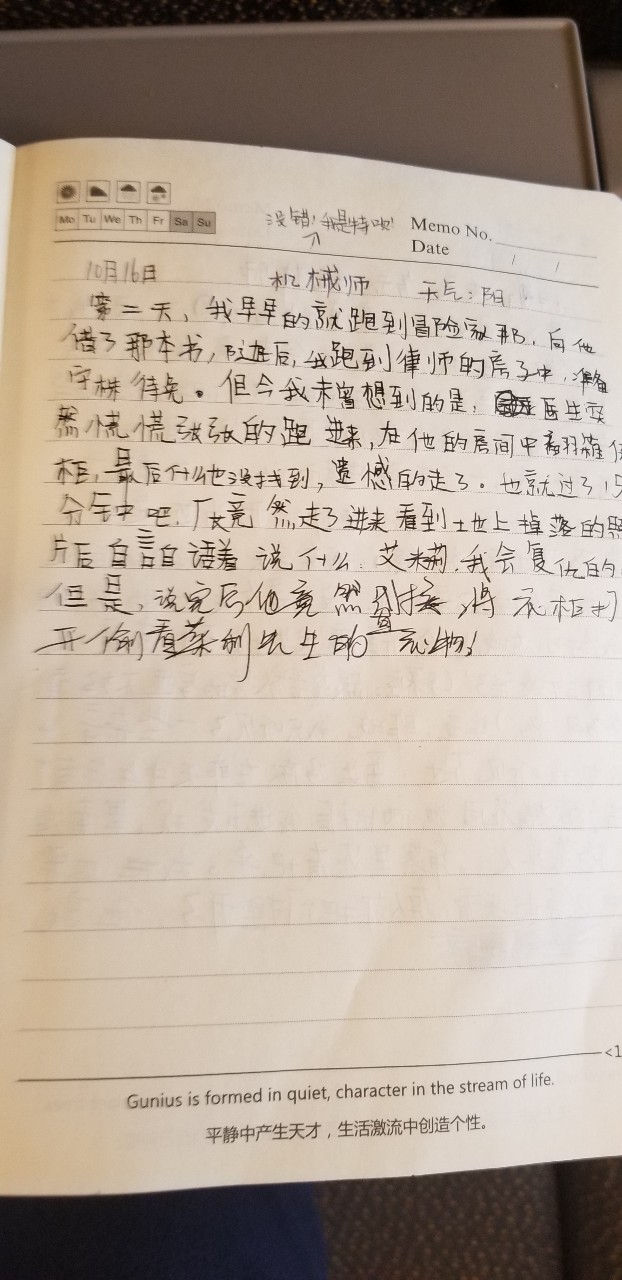 没错!我是特吹!
Memo No.
Mo Tu We Th Fr Sa Su
Date / /
10月16日 机械师 天气:阳
第二天,我早早的就跑到冒险家那,向他
借了那本书,随后,我跑到律师的房子中,准备
守株待兔。但令我未曾想到的是,医生突
然慌慌张张的跑进来,在他的房间中翻箱倒
柜,最后什么也没找到,遗憾的走了。也就过了15
分钟吧,厂长竟然走了进来看到地上掉落的照
片后自言自语着说什么:艾米莉,我会复仇的
但是,说完后他竟然直接,将衣柜打
开偷看莱利先生的衣物!
Gunius is formed in quiet, character in the stream of life.
平静中产生天才,生活激流中创造个性。